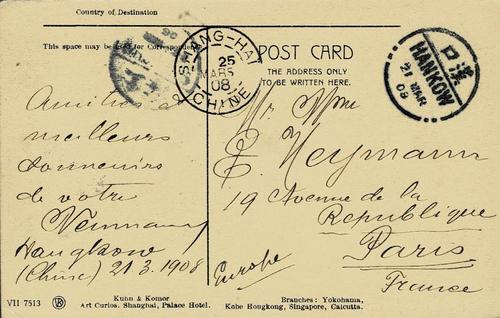 Country of Destination
This space may be used for Correspondence
POST CARD
THE ADDRESS ONLY
TO BE WRITTEN HERE.
SHANG-HAI
25
MARS
08
CHINE
漢口
HANKOW
21 MAR
08
Amitiés &
meilleurs
souvenirs
de votre
Neumann
Hangkow
(Chine) 21.3.1908
Mr. Mme
E. Neymann
19 Avenue de la
Republique
Paris
France
Europe
VII 7513
Kuhn & Komor
Art Curios. Shanghai, Palace Hotel.
Branches: Yokohama,
Kobe Hongkong, Singapore, Calcutta.